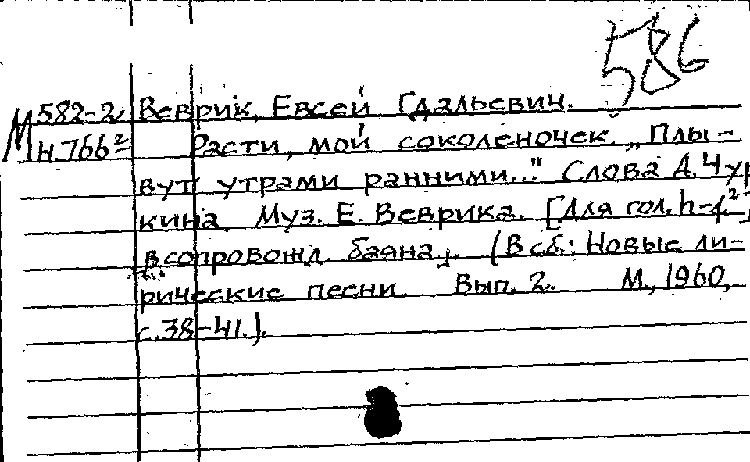 586
М 582-2 Веврик, Евсей Гдальевич.
Н.766² Расти, мой соколеночек. „Плы-
вут утрами ранними..." Слова А. Чур
кина Муз. Е. Веврика. [Для гол. h-f²]
в сопровожд. баяна. (В сб.: Новые ли-
рические песни Вып. 2. М., 1960,
с. 38-41.).